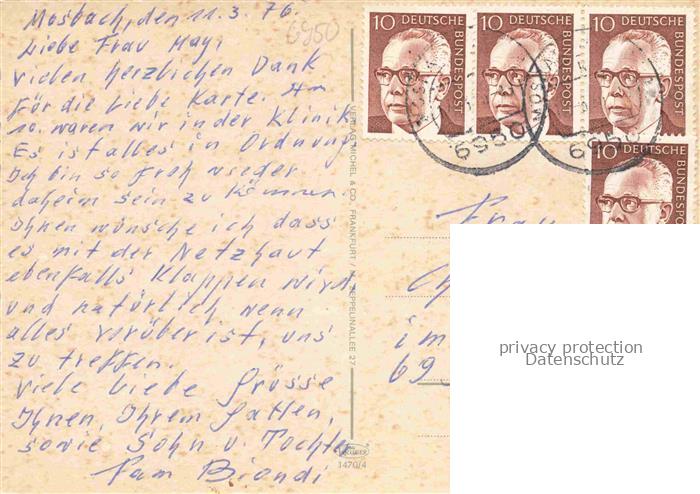 Mosbach, den 11.3.76.
Liebe Frau May,
vielen herzlichen Dank
für die liebe Karte. Am
10. waren wir in der Klinik
Es ist alles in Ordnung
Ich bin so froh wieder
daheim sein zu können.
Ihnen wünsche ich dass
es mit der Netzhaut
ebenfalls klappen wird
und natürlich wenn
alles vorüber ist, uns
zu treffen.
Viele liebe Grüsse
Ihnen, Ihrem Gatten,
sowie Sohn u. Tochter
Fam Biondi
6950
VERLAG MICHEL & CO., FRANKFURT / M. ZEPPELINALLEE 27
1470/4
10 DEUTSCHE BUNDESPOST
10 DEUTSCHE BUNDESPOST
10 DEUTSCHE BUNDESPOST
10 DEUTSCHE BUNDESPOST
6950
6950
Frau
im
69
privacy protection
Datenschutz